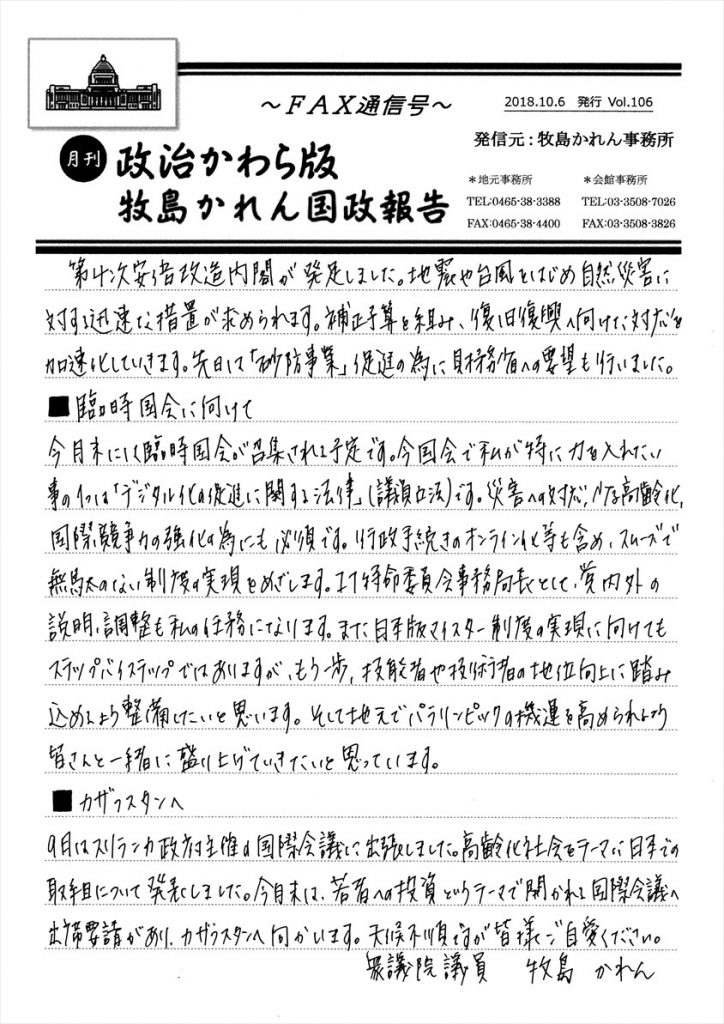 ～FAX通信号～
2018.10.6 発行 Vol.106
発信元：牧島かれん事務所
月刊 政治かわら版
牧島かれん国政報告
＊地元事務所 ＊会館事務所
TEL:0465-38-3388 TEL:03-3508-7026
FAX:0465-38-4400 FAX:03-3508-3826
第4次安倍改造内閣が発足しました。地震や台風をはじめ自然災害に
対する迅速な措置が求められます。補正予算を組み、復旧復興へ向けた対応を
加速化していきます。先日は「砂防事業」促進の為に財務省への要望も行いました。
■臨時国会に向けて
今月末には臨時国会が召集される予定です。今国会で私が特に力を入れたい
事の1つは「デジタル化の促進に関する法律」(議員立法)です。災害への対応、少子高齢化、
国際競争力の強化の為にも必須です。行政手続きのオンライン化等も含め、スムーズで
無駄のない制度の実現をめざします。IT特命委員会事務局長として、党内外の
説明、調整も私の任務になります。また日本版マイスター制度の実現に向けても
ステップバイステップではありますが、もう一歩、技能者や技術者の地位向上に踏み
込めるよう整備したいと思います。そして地元でパラリンピックの機運を高められるよう
皆さんと一緒に盛り上げていきたいと思っています。
■カザフスタンへ
9月はスリランカ政府主催の国際会議に出張しました。高齢化社会をテーマに日本での
取組について発表しました。今月末は、若者への投資というテーマで開かれる国際会議へ
出席要請があり、カザフスタンへ向かいます。天候不順ですが皆様ご自愛ください。
衆議院議員 牧島 かれん